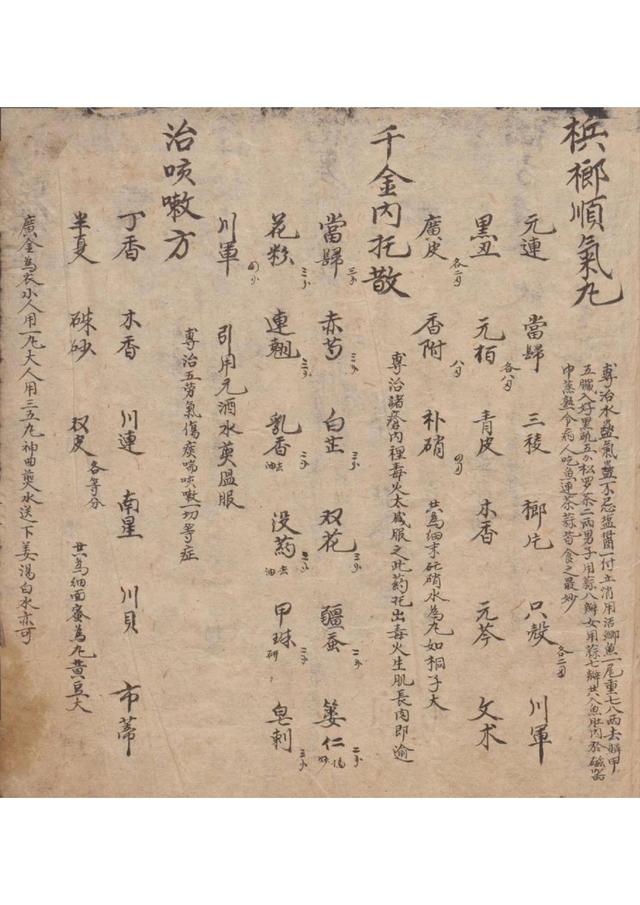 梹榔順氣丸
專治水蠱氣蠱不忌塩醬一付立消用活鯽魚一尾重七八两去鱗甲
五臟入好黑礬五分松罗茶二两男子用蒜八瓣女用蒜七瓣共入魚肚内於磁器
中蒸熟令病人吃魚連茶蒜苟食之最妙
元連 當歸 三稜 榔片 只殼 川軍
黑丑 元柏 青皮 木香 元芩 文术 各二
廣皮 各二 香附 朴硝 共為細末硝水為丸如桐子大
千金内托散
專治諸瘡内裡毒火太盛服之此葯托出毒火生肌長肉即逾
當歸 三 赤芍 三 白芷 三 双花 三 殭蚕 二 蔞仁 二
花粉 三 連翹 三 乳香 去油 没葯 去油 甲珠 研 皂刺 三
川軍 四 引用元酒水煎温服
治咳嗽方
專治五劳氣傷痰喘咳嗽一切等症
丁香 木香 川連 南星 川貝 市蒂
半夏 硃砂 双皮 各等分 共為細面蜜為丸黄豆大
廣金為衣小人用一丸大人用三五丸神曲煎水送下姜湯白水亦可